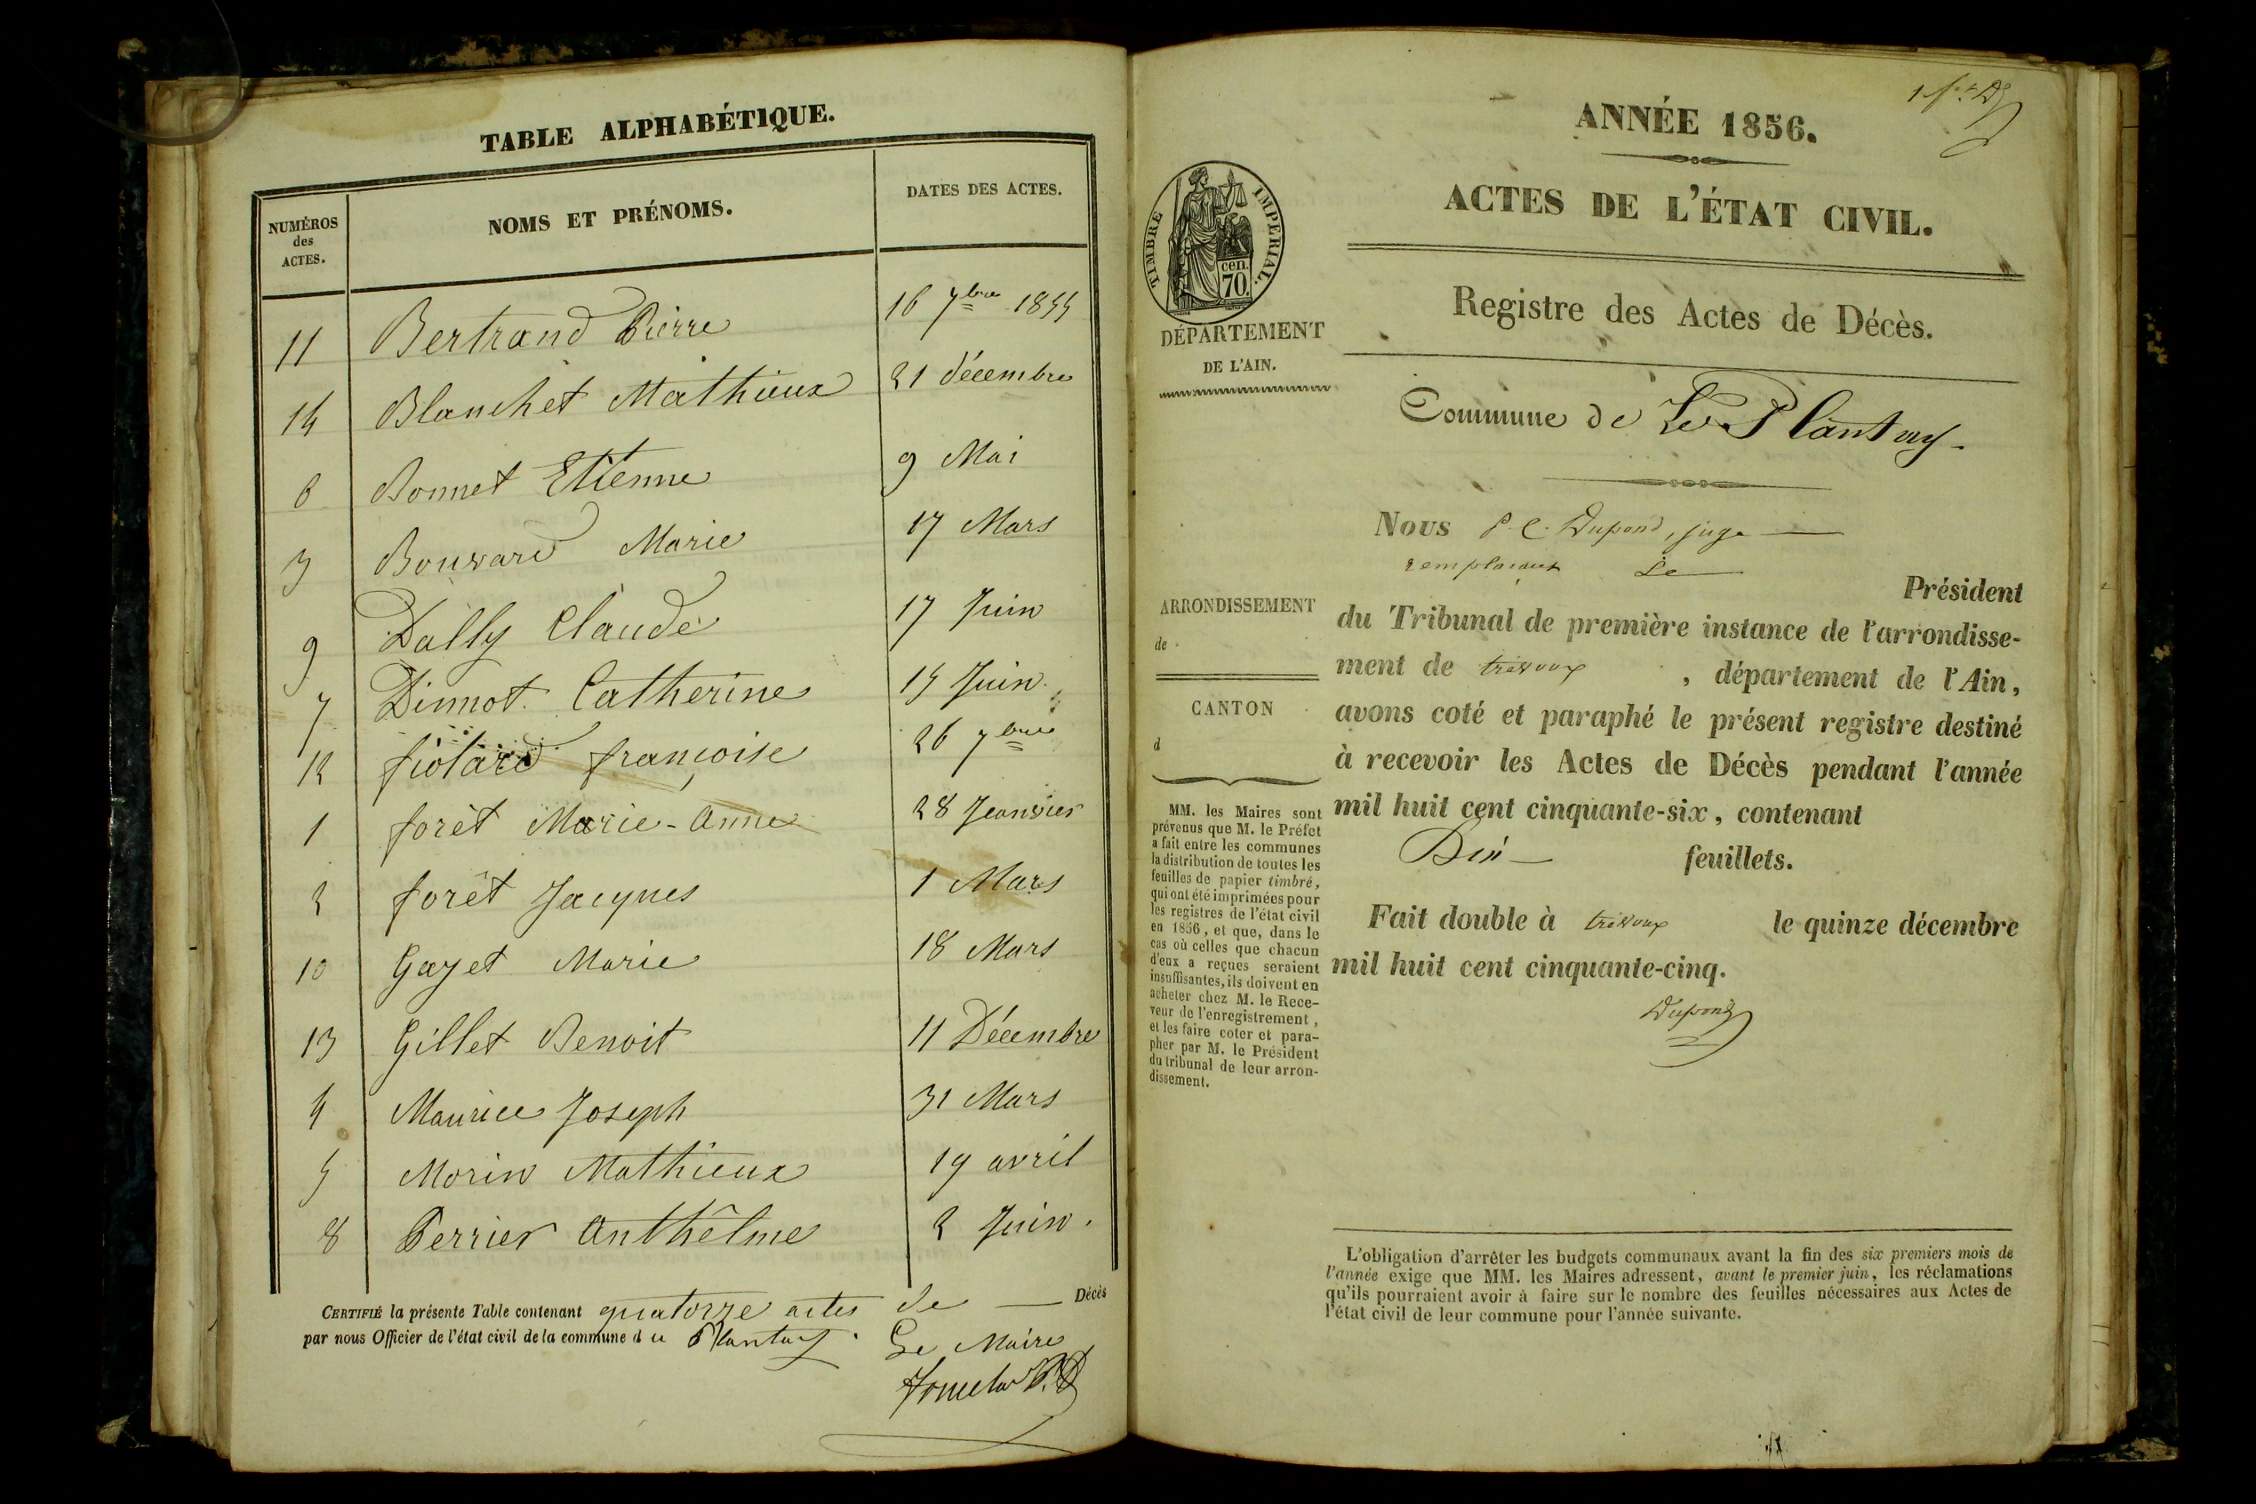 TABLE ALPHABÉTIQUE.
NUMÉROS des ACTES. NOMS ET PRÉNOMS. DATES DES ACTES.
11 Bertrand Pierre 16 7bre 1855
14 Blanchet Mathieux 21 décembre
6 Bonnet Etienne 9 Mai
3 Bouvard Marie 17 Mars
9 Dally Claude 17 Juin
7 Dinnot Catherine 15 Juin
12 fiotard françoise 26 7bre
1 forêt Marie-Anne 28 Jeanvier
2 forêt Jacques 1 Mars
10 Gayet Marie 18 Mars
13 Gillet Benoit 11 Décembre
4 Maurice Joseph 31 Mars
5 Morin Mathieux 19 avril
8 Perrier Anthêlme 2 Juin.
CERTIFIÉ la présente Table contenant quatorze actes de — Décès
par nous Officier de l'état civil de la commune du Plantay.
Le Maire
ANNÉE 1856.
ACTES DE L'ÉTAT CIVIL.
TIMBRE IMPERIAL.
cen.
70.
DÉPARTEMENT
DE L'AIN.
Registre des Actes de Décès.
Commune de Le Plantay.
Nous P. C. Dupond, juge
remplaçant Le
Président
du Tribunal de première instance de l'arrondisse-
ment de trévoux, département de l'Ain,
avons coté et paraphé le présent registre destiné
à recevoir les Actes de Décès pendant l'année
mil huit cent cinquante-six, contenant
Dix feuillets.
Fait double à trévoux le quinze décembre
mil huit cent cinquante-cinq.
Dupond
ARRONDISSEMENT
de
CANTON
d
MM. les Maires sont
prévenus que M. le Préfet
a fait entre les communes
la distribution de toutes les
feuilles de papier timbré,
qui ont été imprimées pour
les registres de l'état civil
en 1856, et que, dans le
cas où celles que chacun
d'eux a reçues seraient
insuffisantes, ils doivent en
acheter chez M. le Rece-
veur de l'enregistrement,
et les faire coter et para-
pher par M. le Président
du tribunal de leur arron-
dissement.
L'obligation d'arrêter les budgets communaux avant la fin des six premiers mois de
l'année exige que MM. les Maires adressent, avant le premier juin, les réclamations
qu'ils pourraient avoir à faire sur le nombre des feuilles nécessaires aux Actes de
l'état civil de leur commune pour l'année suivante.